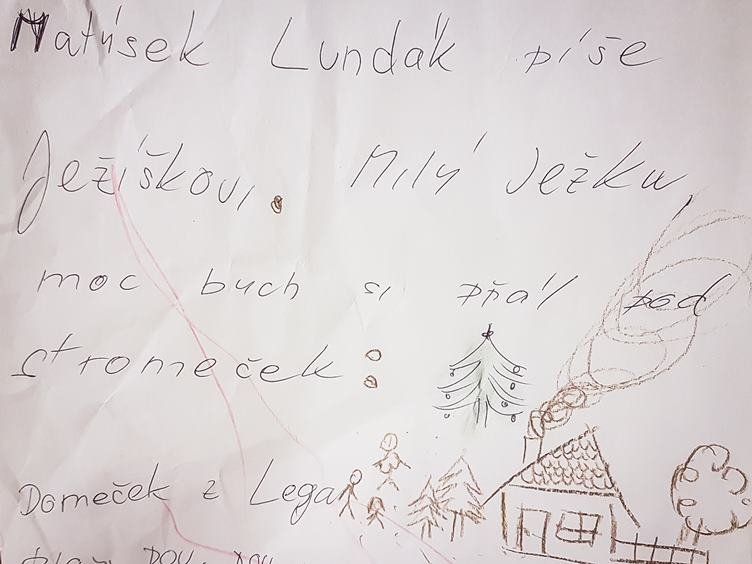 Matýsek Lundák píše
Ježíškovi. Milý Ježku,
moc buch si přál pod
stromeček:
Domeček z Lega